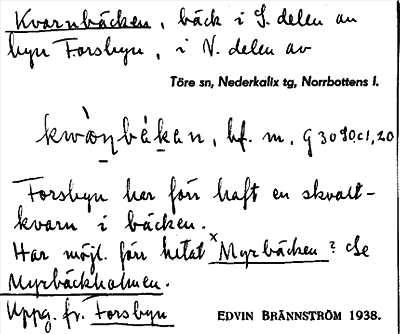 Kvarnbäcken, bäck i S. delen av
byn Forsbyn, i N. delen av
Töre sn, Nederkalix tg, Norrbottens l.
bf. m. G 30 90:c1,20
Forsbyn har förr haft en skvalt-
kvarn i bäcken.
Har möjl. förr hetat ˣMyrbäcken? Se
Myrbäckholmen.
Uppg. fr. Forsbyn
EDVIN BRÄNNSTRÖM 1938.